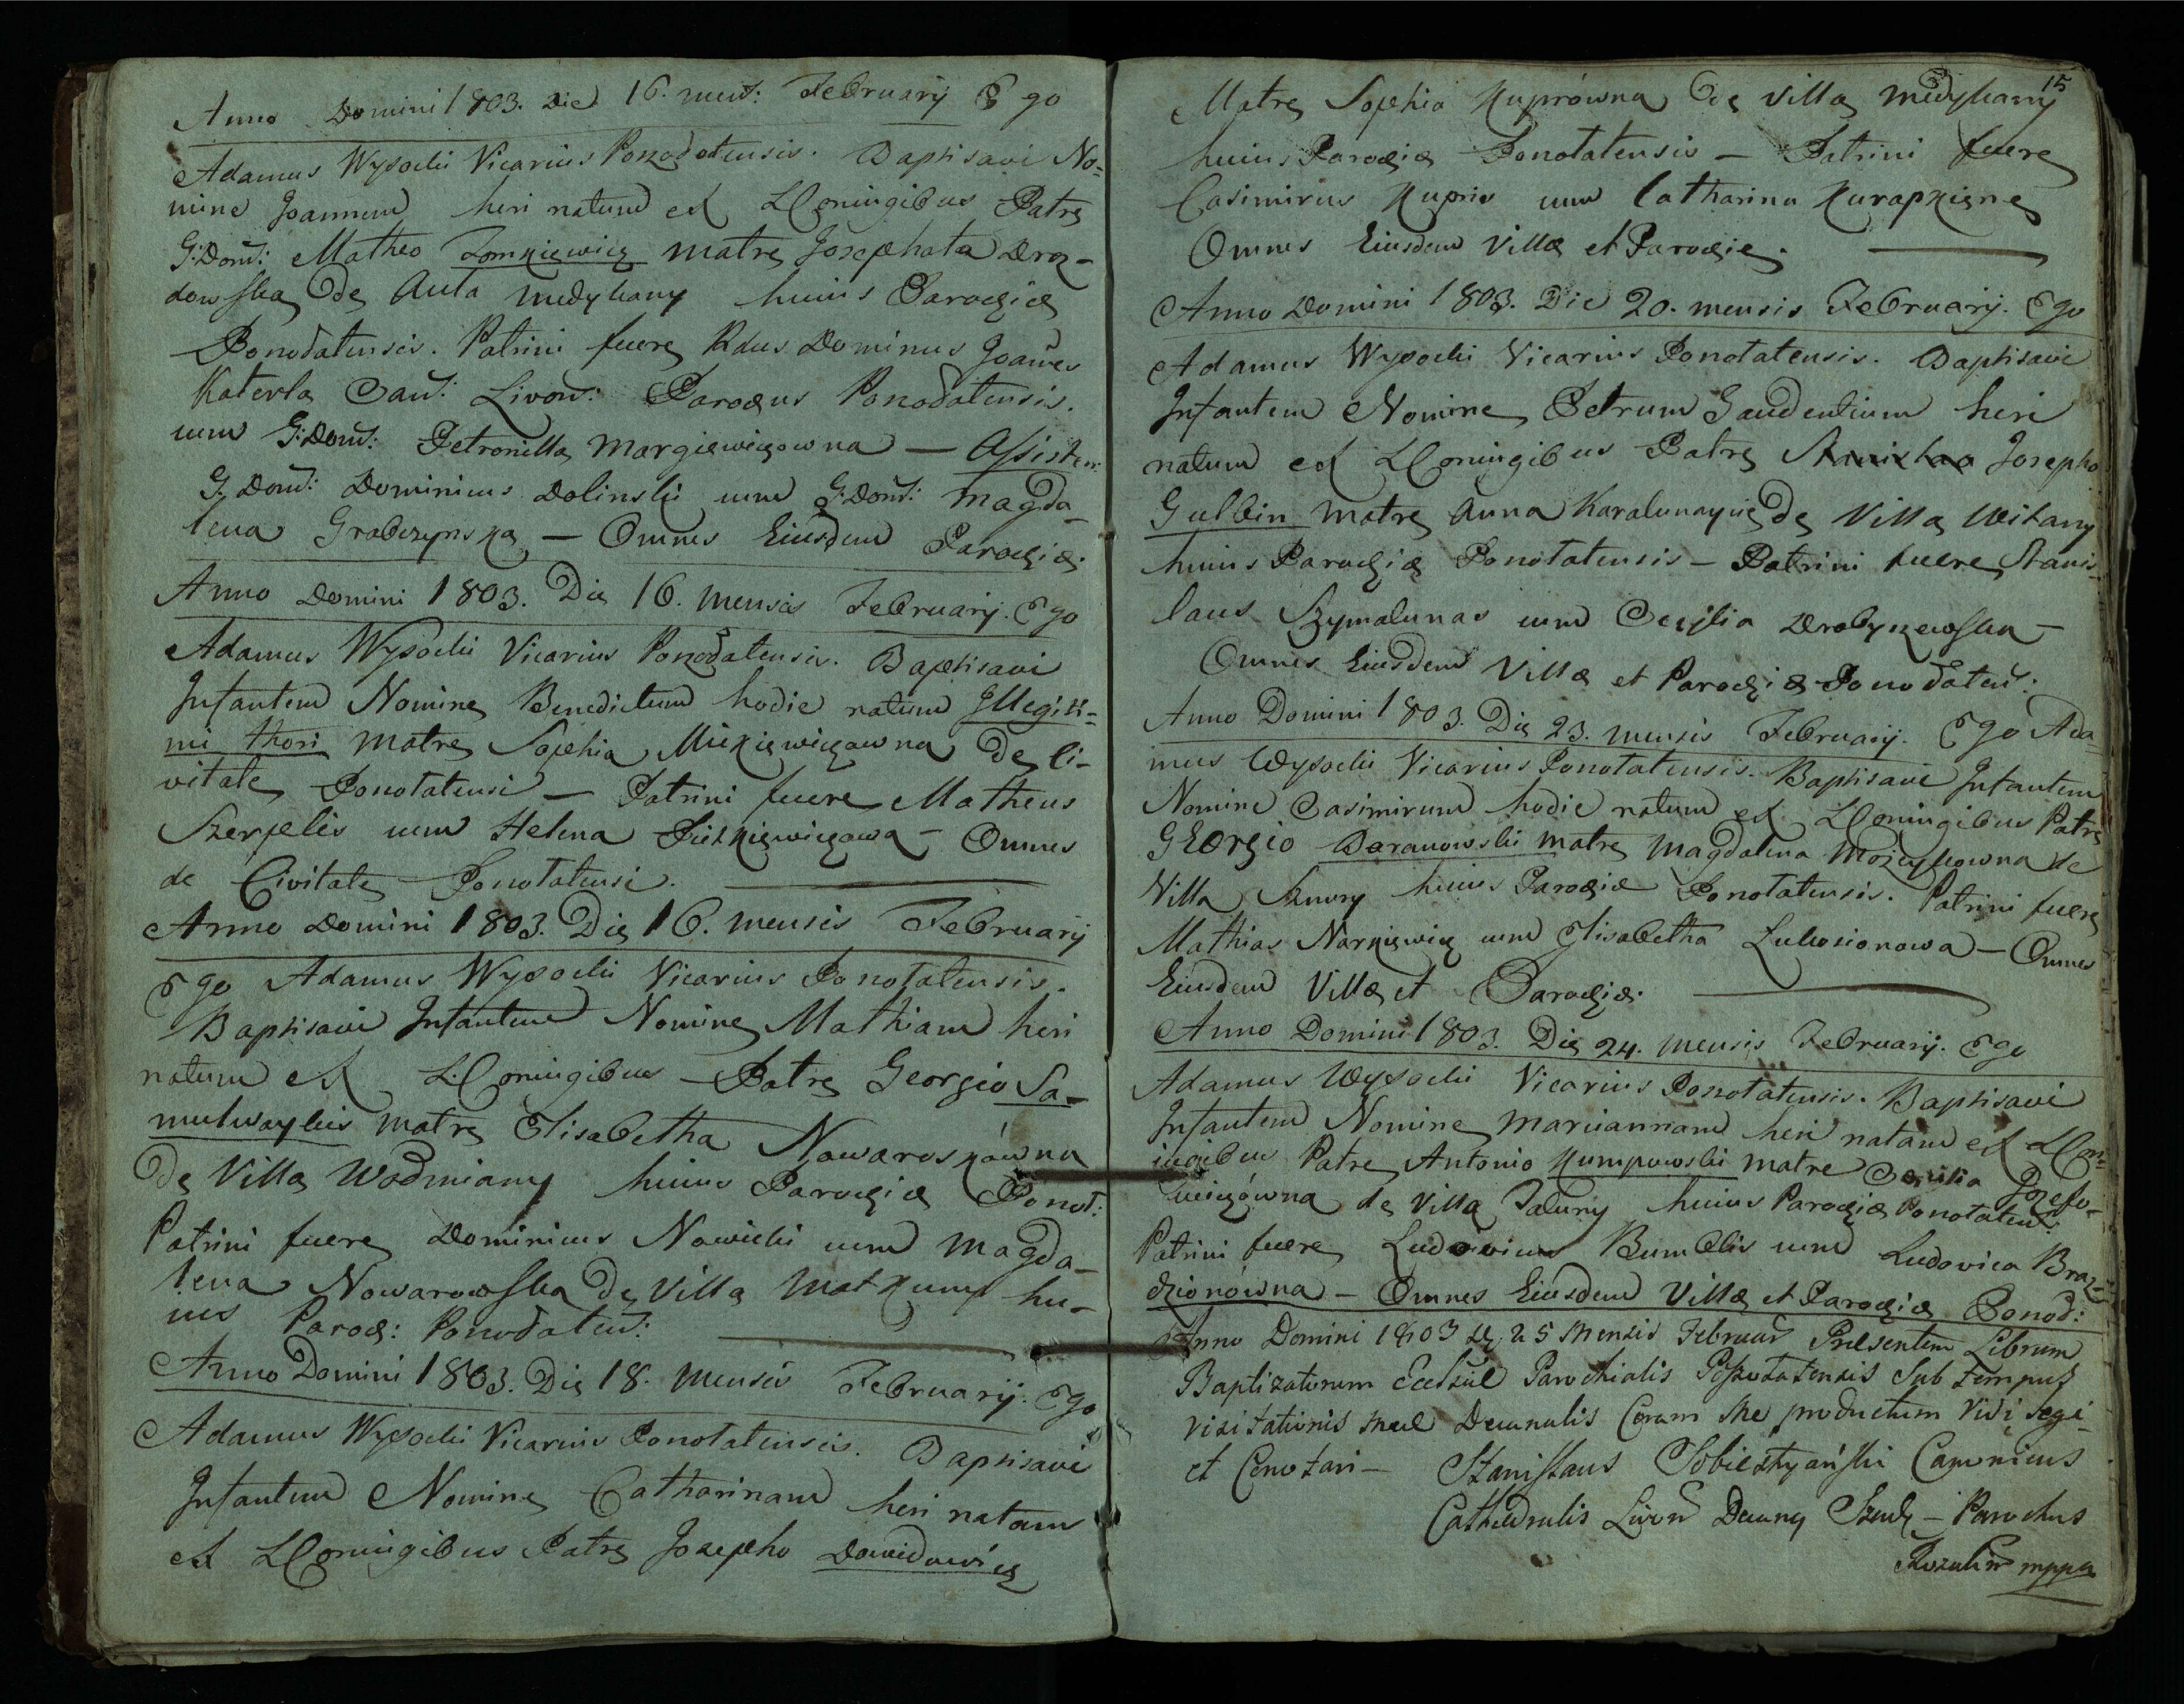 Anno Domini 1803. Die 16. mens: February Ego
Adamus Wysocki Vicarius Ponodatensis. Baptisavi No=
mine Joannem heri natum ex LConiugibus Patre
G:Dom: Matheo Tomkiewicz matre Josephata Droz-
dowska de Aula Medykany huius Parochiæ
Ponodatensis. Patrini fuere Rdus Dominus Joañes
Katerla Can: Livon: Parochus Ponodatensis.
cum G:Dom: Petronilla Margiewiczowna — Assisten:
G. Dom: Dominicus Dolinski cum G:Dom: Magda-
lena Grabczynska — Omnes Eiusdem Parochiæ.
Anno Domini 1803. Die 16. mensis February. Ego
Adamus Wysocki Vicarius Ponodatensis. Baptisavi
Infantem Nomine Benedictum hodie natum Illegiti=
mi thori matre Sophia Mickiewiczowna de Ci-
vitate Ponotatensi — Patrini fuere Matheus
Szerpelis cum Helena — Omnes
de Civitate Ponotatensi.
Anno Domini 1803. Die 16. mensis February
Ego Adamus Wysocki Vicarius Ponotatensis.
Baptisavi Infantem Nomine Mathiam heri
natum ex L:Coniugibus — Patre Georgio Sa-
mulwaykis matre Elisabetha Nowaroskówna
de Villa Wodmiany huius Parochiæ Ponot:
Patrini fuere Dominicus Nowicki cum Magda-
lena Nowarowska de Villa Matkuny hu-
ius Paroch: Ponodaten:
Anno Domini 1803. Die 18. Mensis February. Ego
Adamus Wysocki Vicarius Ponotatensis. Baptisavi
Infantem Nomine Catharinam heri natam
ex LConiugibus Patre Josepho Dawidowicz
15
Matre Sophia Kuprówna de Villa Medykany
huius Parochiæ Ponotatensis — Patrini fuere
Casimirus Kupris cum Catharina Kurapkiene
Omnes Eiusdem Villæ et Parochiæ.
Anno Domini 1803. Die 20. mensis February. Ego
Adamus Wysocki Vicarius Ponotatensis. Baptisavi
Infantem Nomine Petrum Gaudentium heri
natum ex LConiugibus Patre Stanislao Josepho
Gulbin matre Anna Karalunaycie de Villa Witany
huius Parochiæ Ponotatensis — Patrini fuere Stanis-
laus Szymalunas cum Cecylia Drobyszewska —
Omnes Eiusdem Villæ et Parochiæ Ponodaten:
Anno Domini 1803. Die 23. mensis February. Ego Ada=
mus Wysocki Vicarius Ponotatensis. Baptisavi Infantem
Nomine Casimirum hodie natum ex LConiugibus Patre
Georgio Baranowski matre Magdalena Mozeykowna de
Villa Sznury huius Parochiæ Ponotatensis. Patrini fuere
Mathias Narkiewicz cum Elisabetha Lukosionowa — Omnes
Eiusdem Villæ et Parochiæ.
Anno Domini 1803. Die 24. mensis February. Ego
Adamus Wysocki Vicarius Ponotatensis. Baptisavi
Infantem Nomine Mariannam heri natam ex LCon=
iugibus Patre Antonio Kumpowski matre Cecilia Jozefo-
wiczówna de Villa Paluny huius Parochiæ Ponotaten:
Patrini fuere Ludovicus Bumblis cum Ludovica Braz-
dzionówna — Omnes Eiusdem Villæ et Parochiæ Ponod:
Anno Domini 1803 D. 25 Mensis Februar Præsentem Librum
Baptizatorum Ecclsiæ Parochialis Posotatensis Sub tempus
visitationis meæ Decanalis Coram Me productum Vidi legi
et Conotavi — Stanislaus Sobiestyański Canonicus
Cathedralis Livon Decanus — Parochus
Rozalin mppa